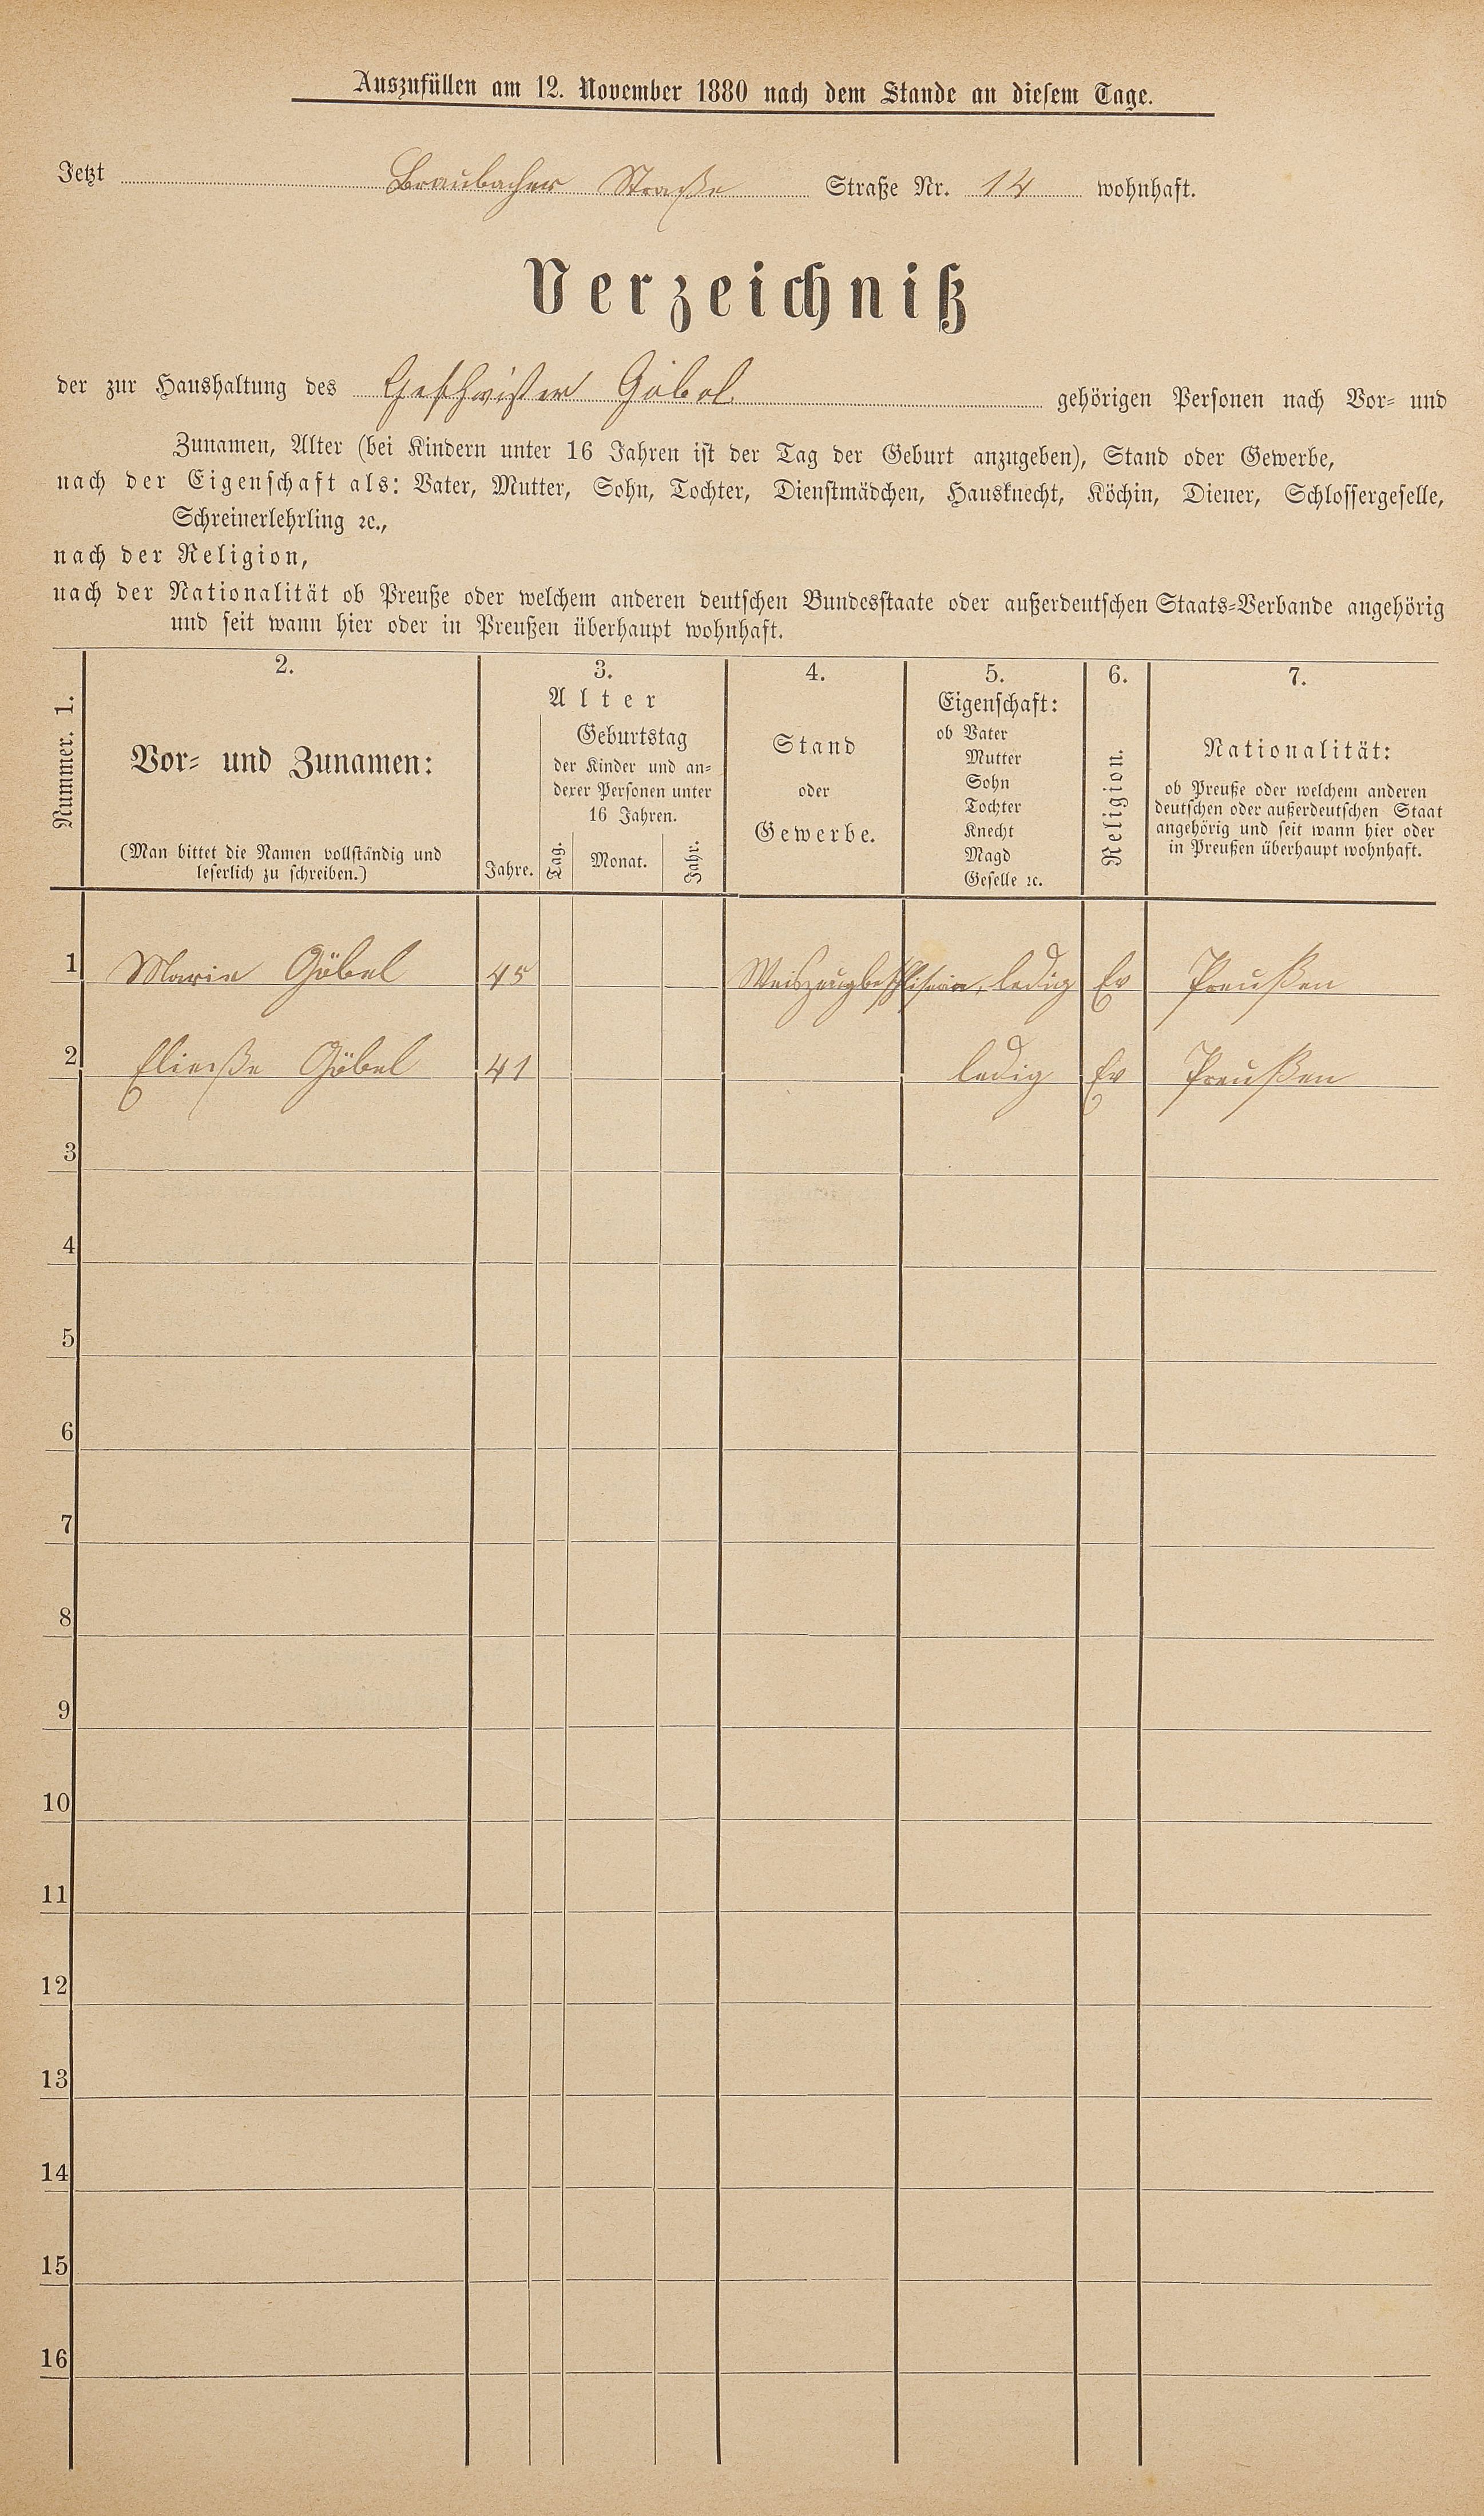 Auszufüllen am 12. November 1880 nach dem Stande an diesem Tage.
Jetzt Braubacher Straße Straße Nr. 14 wohnhaft.
Verzeichniß
der zur Haushaltung des Geschwister Göbel gehörigen Personen nach Vor- und
Zunamen, Alter (bei Kindern unter 16 Jahren ist der Tag der Geburt anzugeben), Stand oder Gewerbe,
nach der Eigenschaft als: Vater, Mutter, Sohn, Tochter, Dienstmädchen, Hausknecht, Köchin, Diener, Schlossergeselle,
Schreinerlehrling ꝛc.,
nach der Religion,
nach der Nationalität ob Preuße oder welchem anderen deutschen Bundesstaate oder außerdeutschen Staats-Verbande angehörig
und seit wann hier oder in Preußen überhaupt wohnhaft.
Nummer. 1.
2.
Vor- und Zunamen:
(Man bittet die Namen vollständig und
leserlich zu schreiben.)
3.
Alter
Jahre.
Geburtstag
der Kinder und an-
derer Personen unter
16 Jahren.
Tag. Monat. Jahr.
4.
Stand
oder
Gewerbe.
5.
Eigenschaft:
ob Vater
Mutter
Sohn
Tochter
Knecht
Magd
Geselle ꝛc.
6.
Religion.
7.
Nationalität:
ob Preuße oder welchem anderen
deutschen oder außerdeutschen Staat
angehörig und seit wann hier oder
in Preußen überhaupt wohnhaft.
1 Marie Göbel 45 ledig Ev Preußen
2 Göbel 41 ledig Ev Preußen
3
4
5
6
7
8
9
10
11
12
13
14
15
16